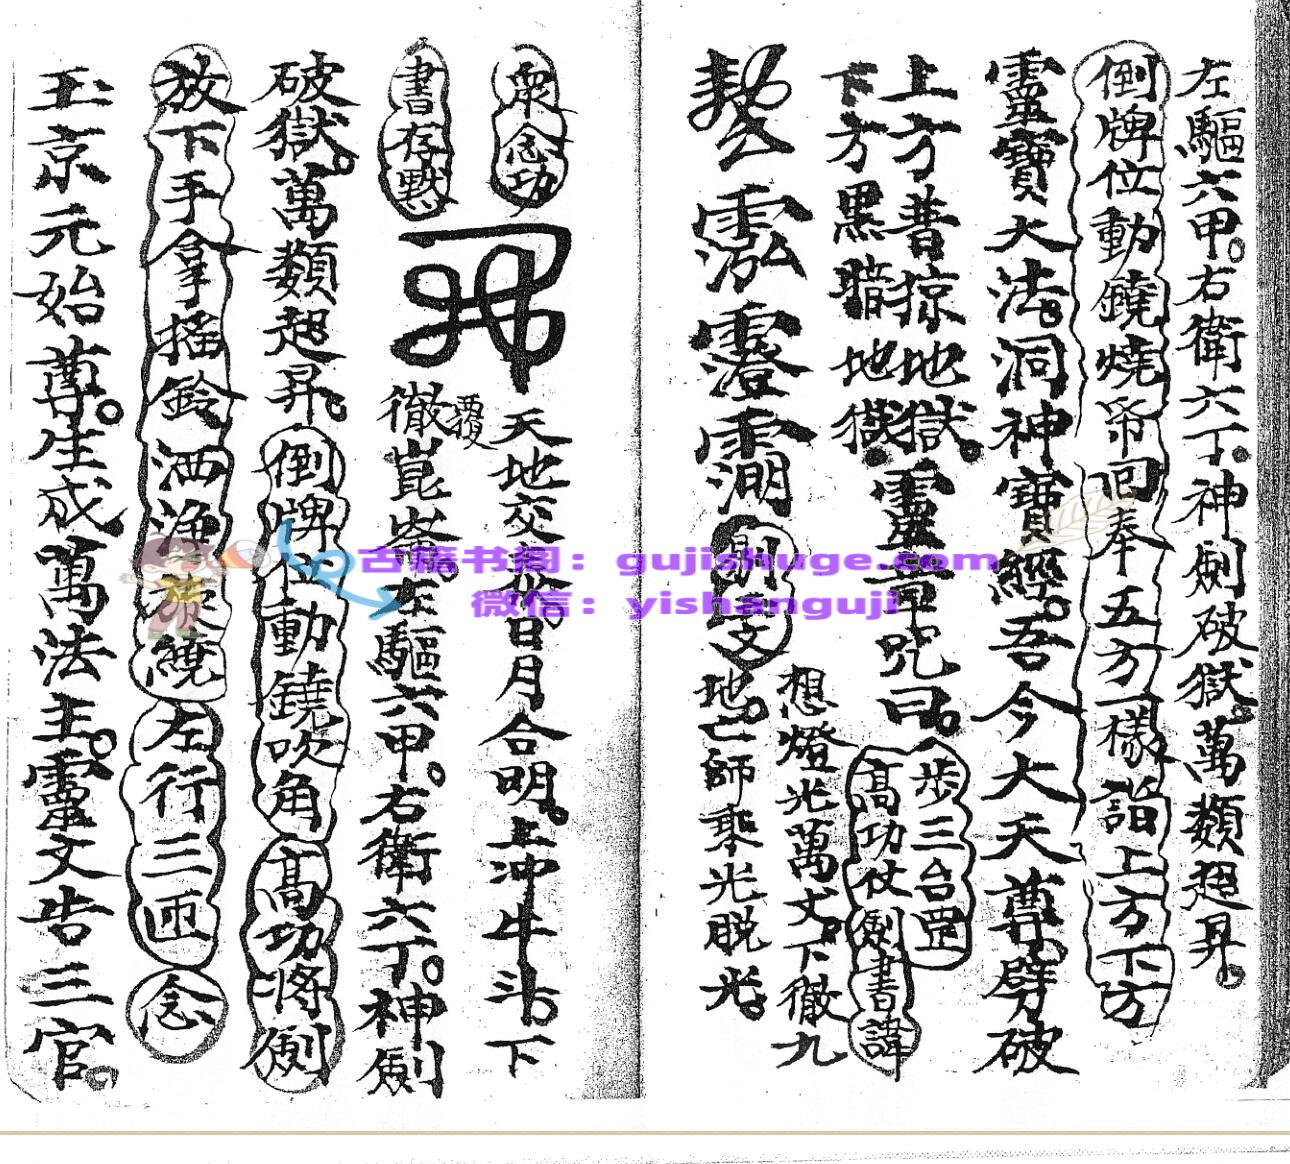 左驅六甲。右衛六丁。神劍破獄。萬類超昇。
倒牌位動鐃燒帋同奉五方一樣詣上方下方
靈寶大法。洞神寶經。吾今大天尊。劈破
上方普掠地獄。
下方黑暗地獄。
靈章咒曰。
步三台罡
高功仗劍書諱
想燈光萬丈。下徹九
地。亡師乘光脫光。
劍文
眾念功
書存默
天地交 日月合明。上冲牛斗。下
徹崑崙。左驅六甲。右衛六丁。神劍
破獄。萬類超昇。倒牌位動鐃吹角高功將劍
放下手拿搖鈴洒淨 繞左行三匝念
玉京元始尊。生成萬法主。靈文告三官。
古籍书阁：gujishuge.com
微信：yishanguji